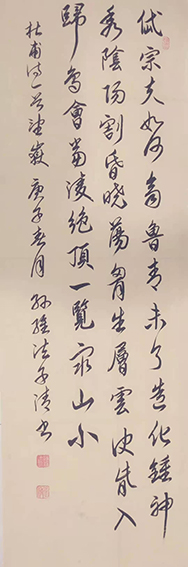 岱宗夫如何齊魯青未了造化鍾神
秀陰陽割昏曉蕩胸生層雲決眥入
歸鳥會當凌絕頂一覽眾山小
杜甫詩一首望嶽庚子春月孫維法子清書